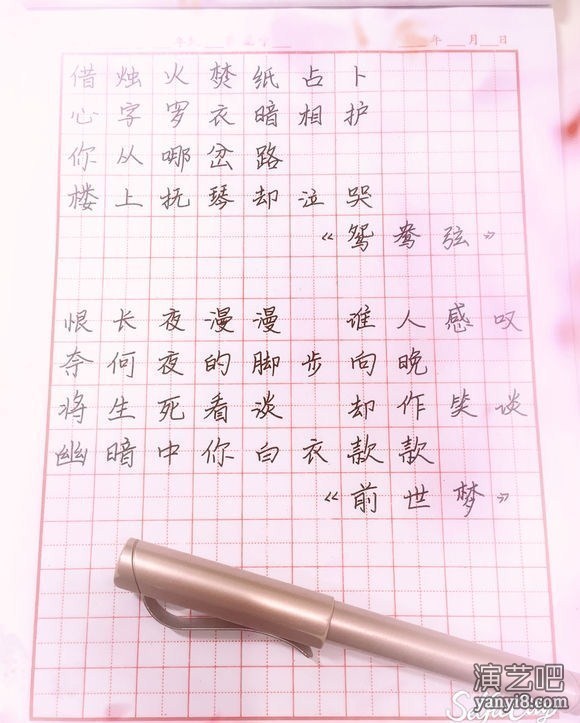 年 月 日
借烛火焚纸占卜
心字罗衣暗相护
你从哪岔路
楼上抚琴却泣哭
《鸳鸯弦》
恨长夜漫漫 谁人感叹
奈何夜的脚步向晚
将生死看淡 却作笑谈
幽暗中你白衣款款
《前世梦》
演艺吧
yanyi8.com